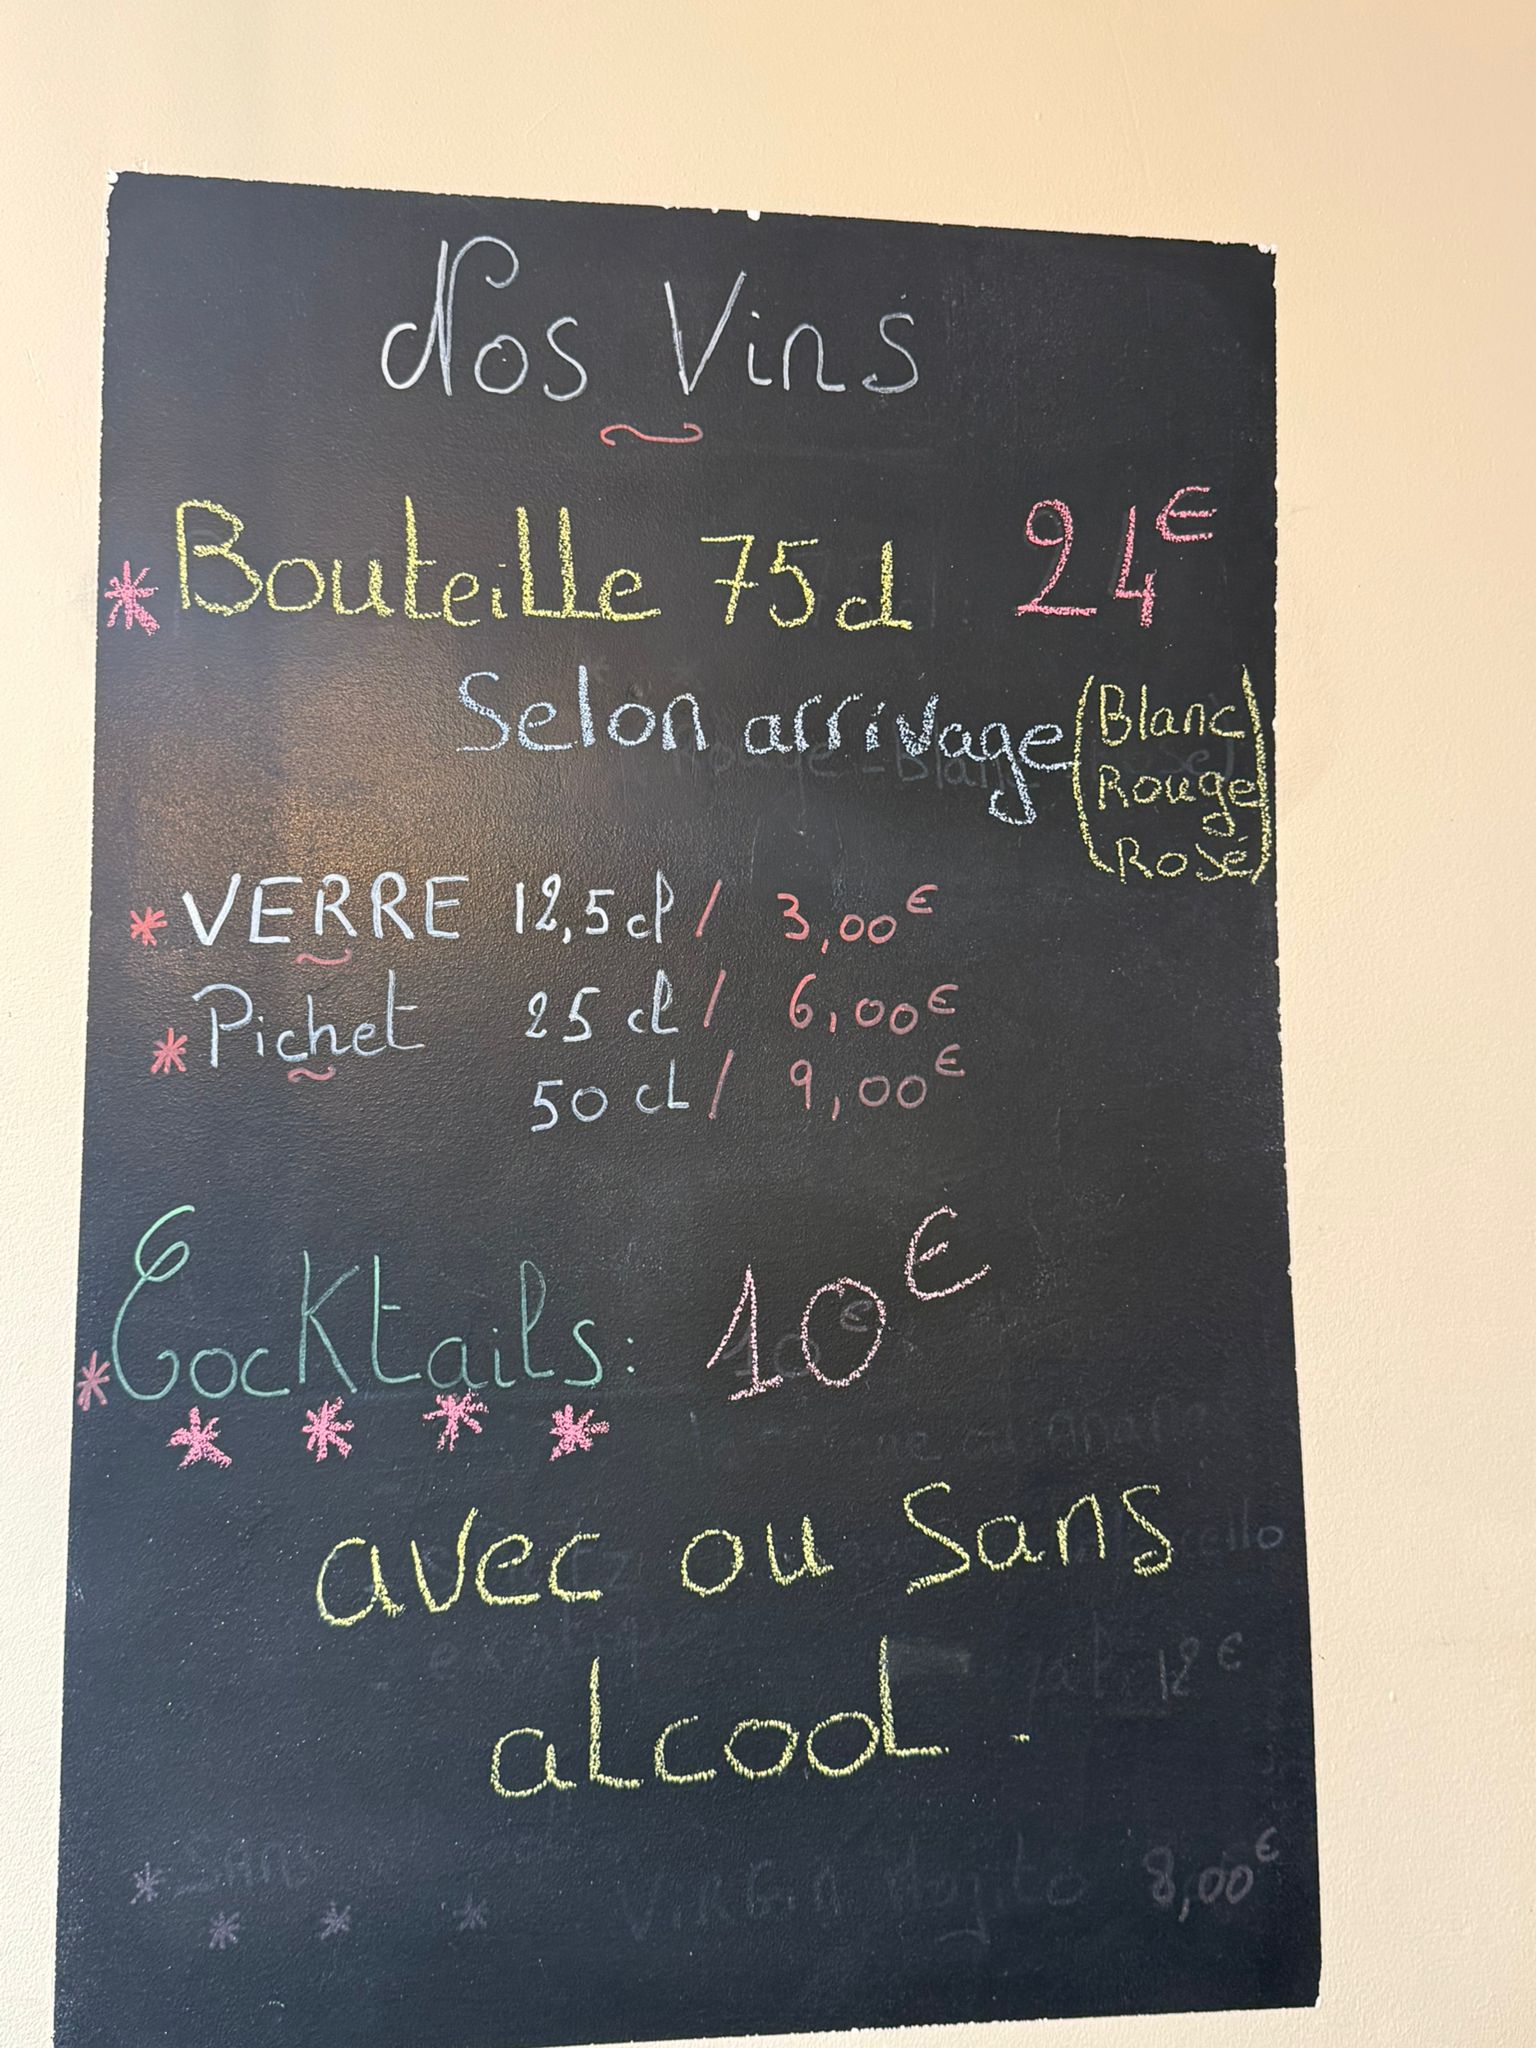 Nos Vins
* Bouteille 75cl 24€
Selon arrivage (Blanc
Rouge
Rosé)
* VERRE 12,5 cl / 3,00€
* Pichet 25 cl / 6,00€
50 cl / 9,00€
* Cocktails: 10€
* * * *
avec ou Sans
alcool.
12€
* SANS
VIRGIN Mojito 8,00€
* * *